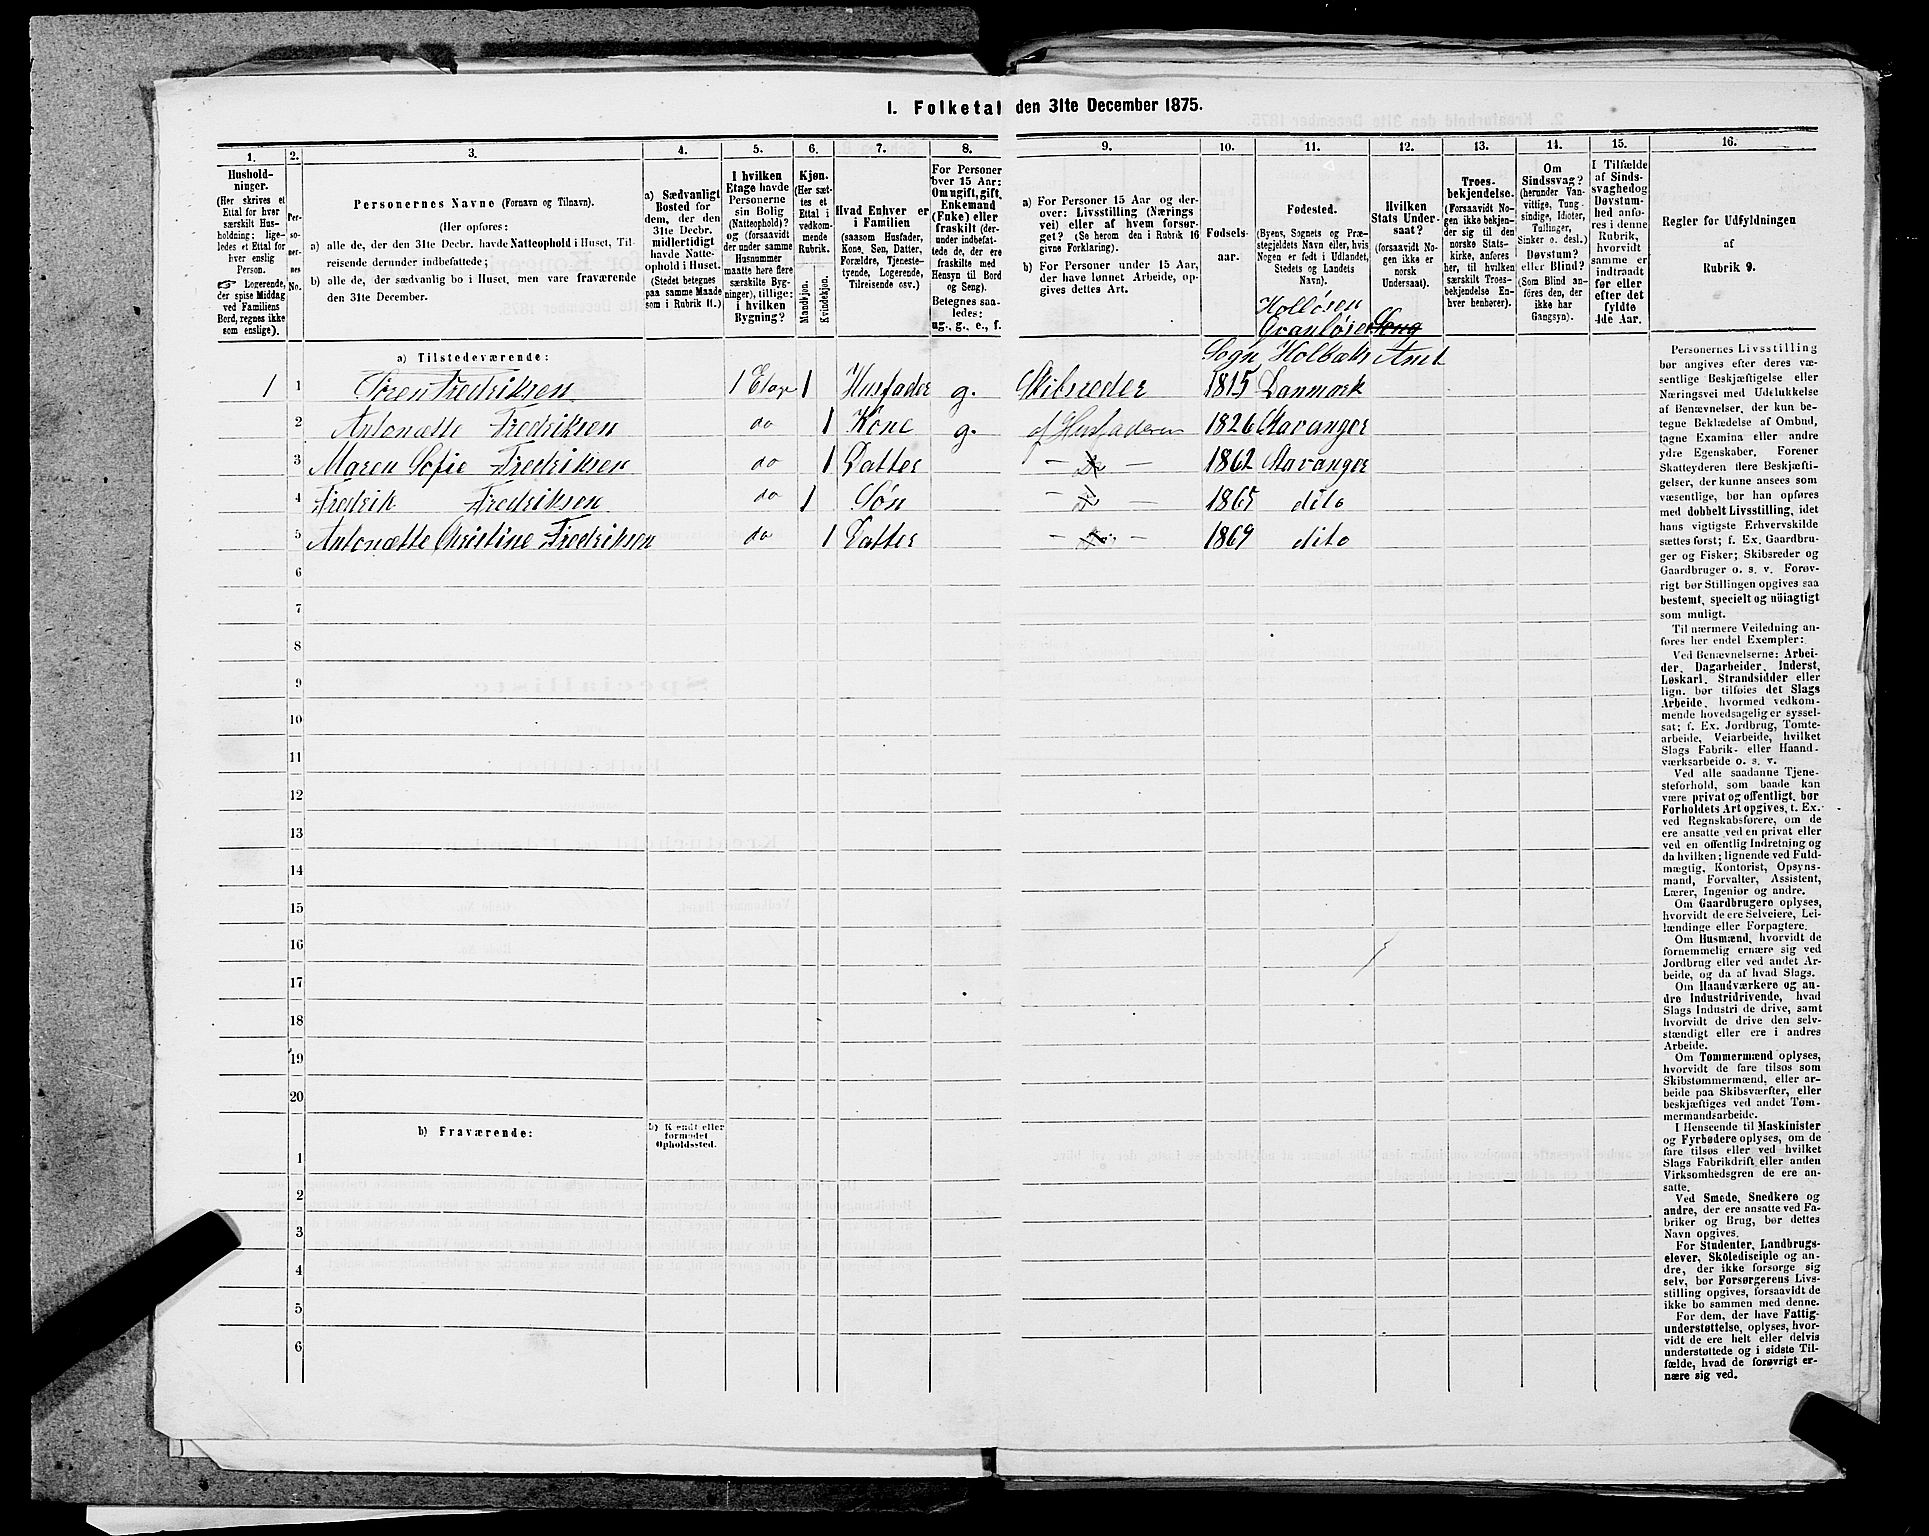 1. Folketal den 31te December 1875.
1. 2. 3. 4. 5. 6. 7. 8. 9. 10. 11. 12. 13. 14. 15. 16.
Husholdninger.
(Her skrives et
Ettal for hver
særskilt Husholdning; ligeledes
et Ettal for
hver enslig
Person.
☞ Logerende,
der spise Middag
ved Familiens
Bord, regnes ikke
som enslige).
Personernes No.
Personernes Navne (Fornavn og Tilnavn).
(Her opføres:
a) alle de, der den 31te Decbr. havde Natteophold i Huset, Tilreisende
derunder indbefattede;
b) alle de, der sædvanlig bo i Huset, men vare fraværende
den 31te December.
a) Sædvanligt
Bosted for
dem, der den
31te Decbr.
midlertidigt
havde Natteophold
i Huset.
(Stedet betegnes
paa samme Maade
som i Rubrik 11.)
I hvilken
Etage havde
Personerne
sin Bolig
(Natteophold)?
og (forsaavidt
der under samme
Husnummer
maatte høre flere
særskilte Bygninger),
tillige:
i hvilken
Bygning?
Kjøn.
(Her sættes
et
Ettal i
vedkommende
Rubrik.
Mandkjøn.
Kvindekjøn.
Hvad Enhver er
i Familien
(saasom Husfader,
Kone, Søn, Datter,
Forældre, Tjenestetyende,
Logerende,
Tilreisende osv.)
For Personer
over 15 Aar:
Om ugift, gift,
Enkemand
(Enke) eller
fraskilt (derunder
indbefattede,
de ere
fraskilte med
Hensyn til Bord
og Seng).
Betegnes saaledes:
ug., g., e., f.
a) For Personer 15 Aar og derover:
Livsstilling (Næringsvei)
eller af hvem forsørget?
(Se herom den i Rubrik 16
givne Forklaring).
b) For Personer under 15 Aar,
der have lønnet Arbeide, opgives
dettes Art.
Fødselsaar.
Fødested.
(Byens, Sognets og Præstegjeldets
Navn, eller, hvis
Nogen er født i Udlandet,
Stedets og Landets
Navn).
Hvilken
Stats Undersaat?
(forsaavidt Nogen
ikke er
norsk
Undersaat).
Troesbekjendelse.
(Forsaavidt Nogen
ikke bekjender
sig til den
norske Statskirke,
anføres
her, til hvilken
særskilt Troesbekjendelse
Enhver
henhører).
Om
Sindssvag?
(herunder Vanvittige,
Tungsindige,
Idioter,
Tullinger,
Sinker o. desl.)
Døvstum?
eller Blind?
(Som Blind anføres
den, der
ikke har
Gangsyn).
I Tilfælde
af Sindssvaghed
og
Døvstumhed
anføres
i denne
Rubrik,
hvorvidt
samme er
indtraadt
før eller
efter det
fyldte
4de Aar.
Regler for Udfyldningen
af
Rubrik 9.
Holløsen
Granløse Sogn
Sogn Holbæk Amt
a) Tilstedeværende:
1 1 Søren Fredriksen 1 Etage 1 Husfader g. Skibsreder 1815 Danmark
2 Antonætte Fredriksen do 1 Kone g. af Husfaderen 1826 Stavanger
3 Maren Sofie Fredriksen do 1 Datter – Do – 1862 Stavanger
4 Fredrik Fredriksen do 1 Søn – Do – 1865 dito
5 Antonætte Christine Fredriksen do 1 Datter – Do – 1869 dito
6
7
8
9
10
11
12
13
14
15
16
17
18
19
20
b) Fraværende:
b) Kjendt eller
formodet
Opholdssted.
1
2
3
4
5
6
Personernes Livsstilling
bør angives efter deres væsentlige
Beskjæftigelse eller
Næringsvei med Udelukkelse
af Benævnelser, der kun betegne
Beklædelse af Ombud,
tagne Examina eller andre
ydre Egenskaber. Forener
Skatteyderen flere Beskjæftigelser,
der kunne ansees som
væsentlige, bør han opføres
med dobbelt Livsstilling, idet
hans vigtigste Erhvervskilde
sættes først; f. Ex. Gaardbruger
og Fisker; Skibsreder og
Gaardbruger o. s. v. Forøvrigt
bør Stillingen opgives saa
bestemt, specielt og nøiagtigt
som muligt.
Til nærmere Veiledning anføres
her endel Exempler:
Ved Benævnelserne: Arbeider,
Dagarbeider, Inderst,
Løskarl, Strandsidder eller
lign. bør tilføies det Slags
Arbeide, hvormed vedkommende
hovedsagelig er sysselsat;
f. Ex. Jordbrug, Tomtearbeide,
Veiarbeide, hvilket
Slags Fabrik- eller Haandværksarbeide
o. s. v.
Ved alle saadanne Tjenesteforhold,
som baade kan
være privat og offentligt, bør
Forholdets Art opgives, t. Ex.
ved Regnskabsførere, om de
ere ansatte ved en privat eller
ved en offentlig Indretning og
da hvilken; lignende ved Fuldmægtig,
Kontorist, Opsynsmand,
Forvalter, Assistent,
Lærer, Ingeniør og andre.
Om Gaardbrugere oplyses,
hvorvidt de ere Selveiere, Leilændinge
eller Forpagtere.
Om Husmænd, hvorvidt de
fornemmelig ernære sig ved
Jordbrug eller ved andet Arbeide,
og da af hvad Slags.
Om Haandværkere og andre
Industridrivende, hvad
Slags Industri de drive, samt
hvorvidt de drive den selvstændigt
eller ere i andres
Arbeide.
Om Tømmermænd oplyses,
hvorvidt de fare tilsøs som
Skibstømmermænd, eller arbeide
paa Skibsværfter, eller
beskjæftiges ved andet Tømmermandsarbeide.
I Henseende til Maskinister
og Fyrbødere oplyses, om de
fare tilsøs eller ved hvilket
Slags Fabrikdrift eller anden
Virksomhedsgren de ere ansatte.
Ved Smede, Snedkere og
andre, der ere ansatte ved Fabriker
og Brug, bør dettes
Navn opgives.
For Studenter, Landbrugselever,
Skoledisciple og andre,
der ikke forsørge sig
selv, bør Forsørgerens Livsstilling
opgives, forsaavidt de
ikke bo sammen med denne.
For dem, der have Fattigunderstøttelse,
oplyses, hvorvidt
de ere helt eller delvis
understøttede og i sidste Tilfælde,
hvad de forøvrigt ernære
sig ved.